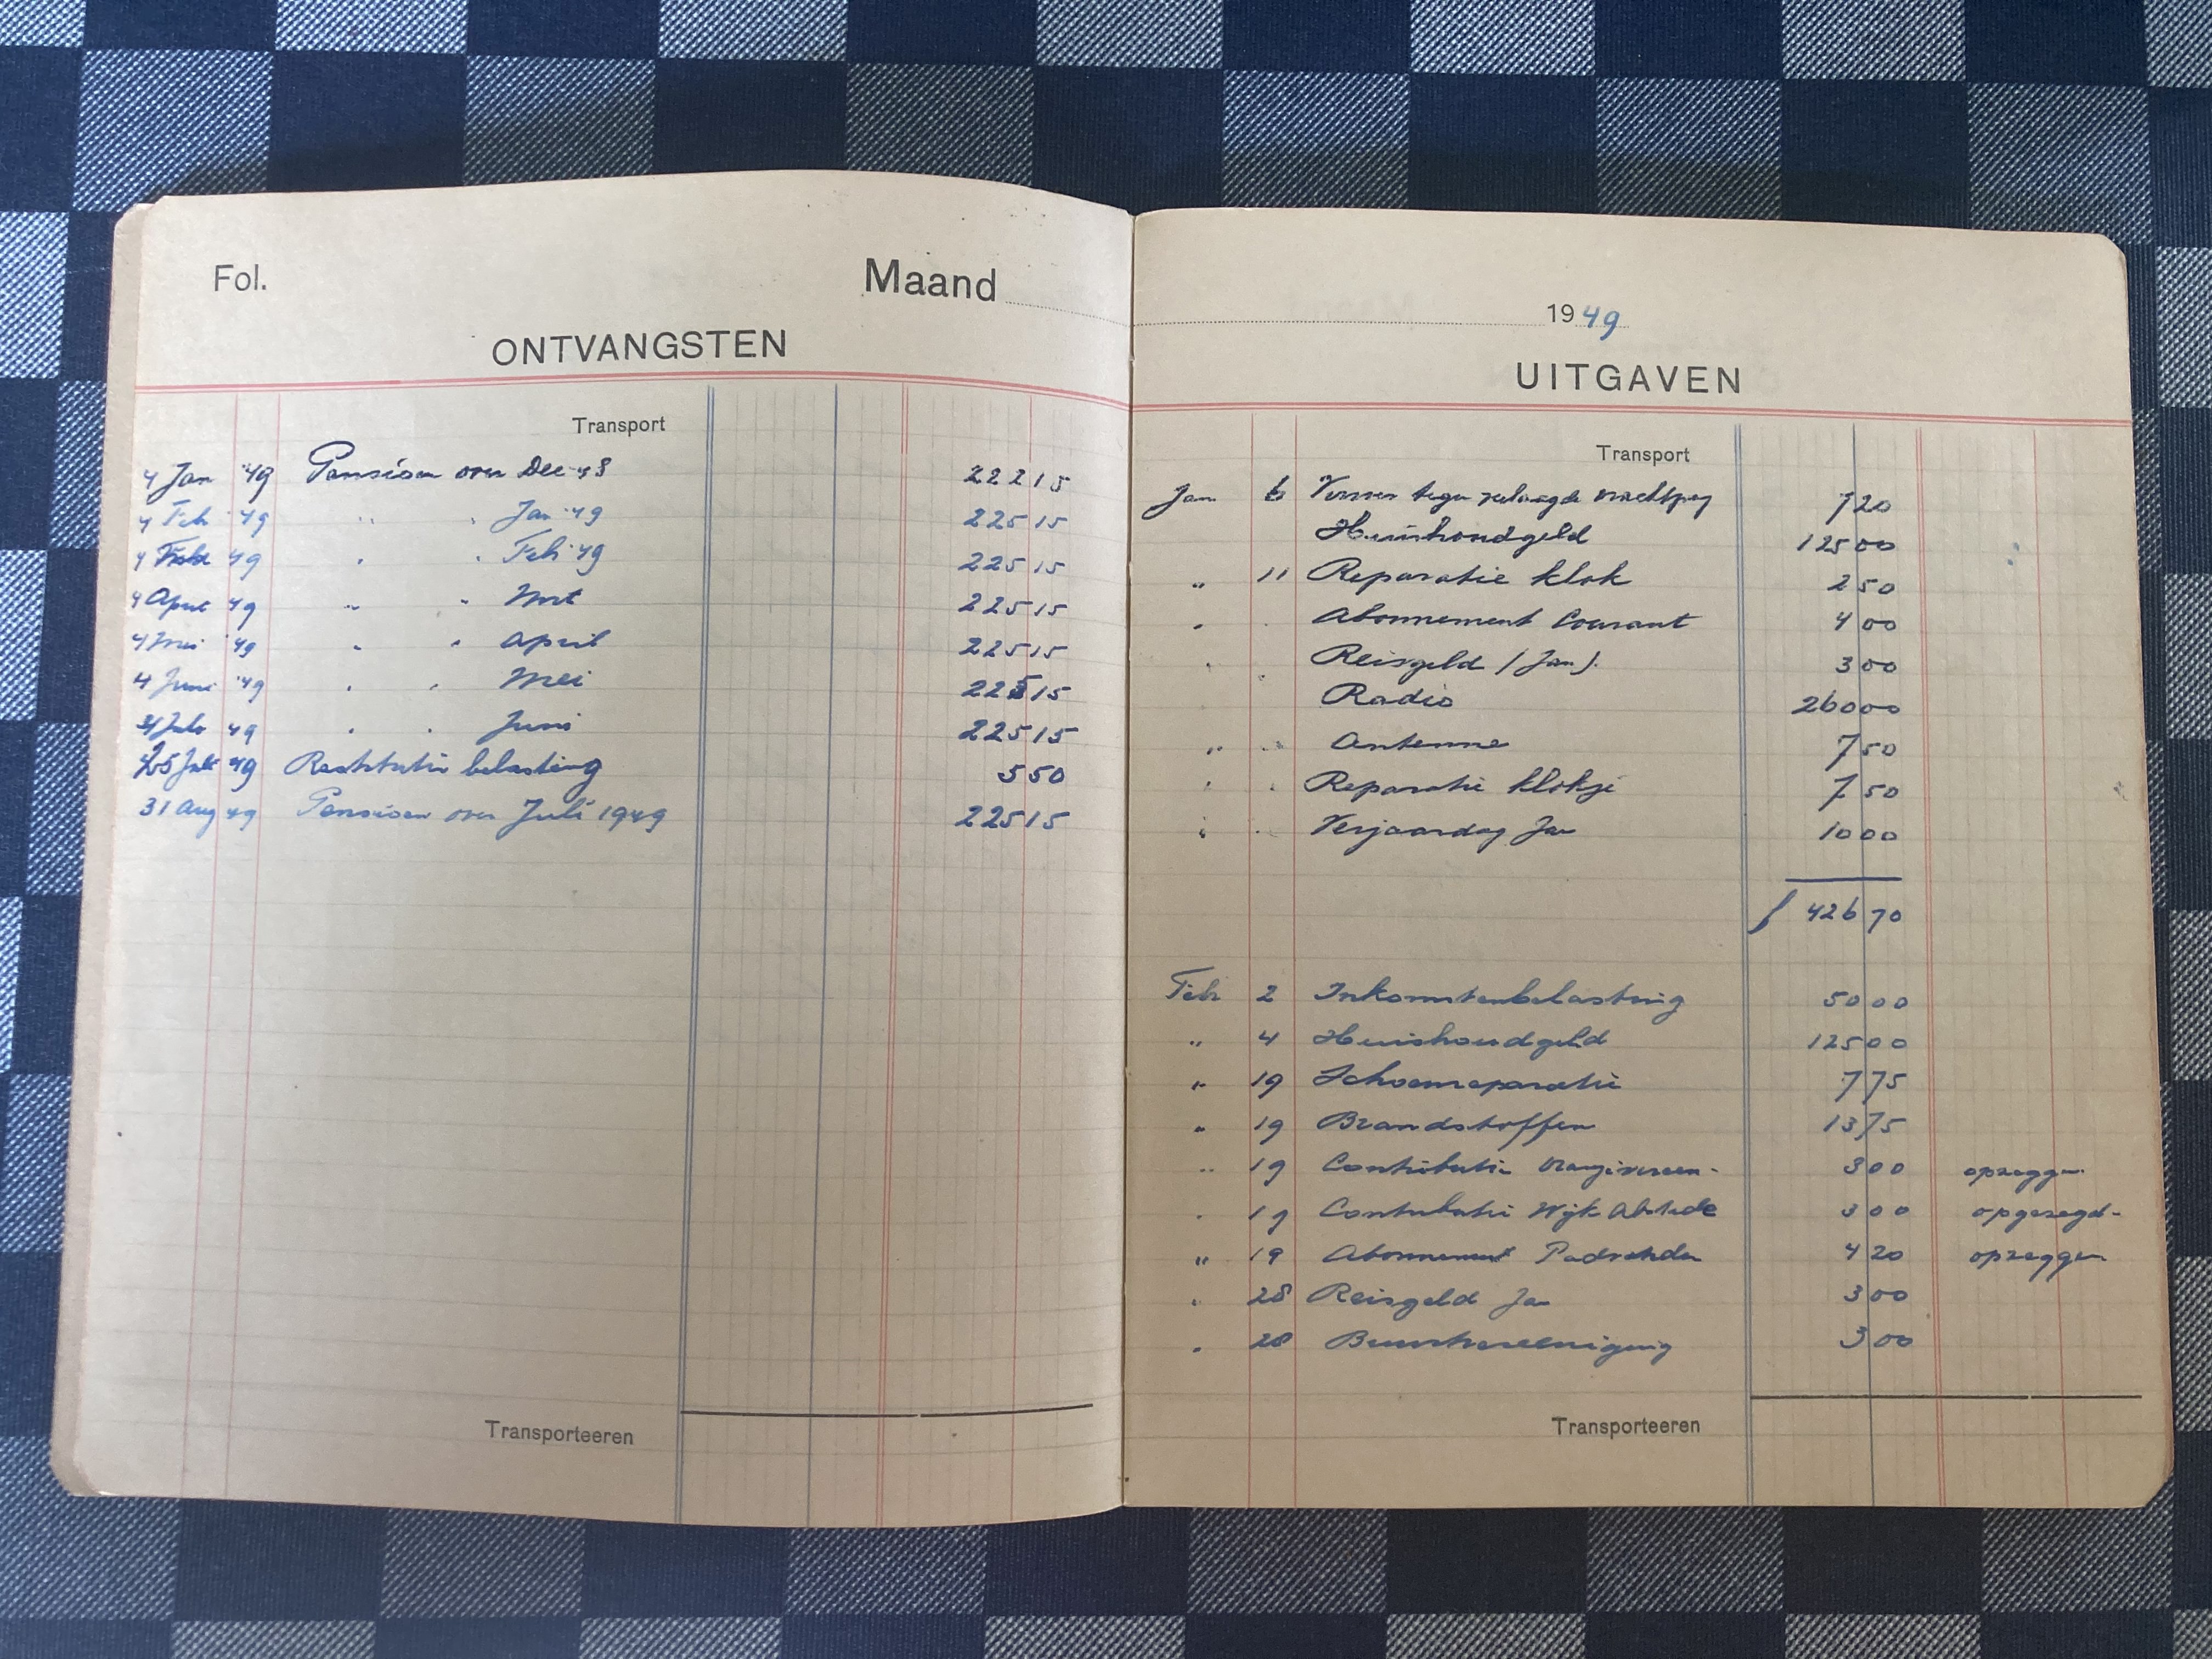 Fol.
Maand
ONTVANGSTEN
Transport
4 Jan '49 Pensioen over Dec 48 222 15
4 Feb '49 " " Jan '49 225 15
4 49 " " Feb '49 225 15
4 April 49 " " Mrt 225 15
4 Mei '49 " " April 225 15
4 Juni '49 " " Mei 225 15
4 Juli 49 " " Juni 225 15
25 Juli 49 Restitutie belasting 5 50
31 Aug 49 Pensioen over Juli 1949 225 15
Transporteeren
1949
UITGAVEN
Transport
Jan 6 tegen 7 20
Huishoudgeld 125 00
" 11 Reparatie klok 2 50
" " Abonnement Courant 4 00
" " Reisgeld (Jan). 3 00
Radio 260 00
" " Antenne 7 50
" " Reparatie klokje 7 50
" " Verjaardag Jan 10 00
f 426 70
Feb 2 Inkomstenbelasting 50 00
" 4 Huishoudgeld 125 00
" 19 Schoenreparatie 7 75
" 19 Brandstoffen 13 75
" 19 Contributie Oranjevereen. 3 00 opzeggen
" 19 Contributie Wijk Abstede 3 00 opgezegd
" 19 Abonnement 4 20 opzeggen
" 28 Reisgeld Jan 3 00
" 28 Buurtvereeniging 3 00
Transporteeren